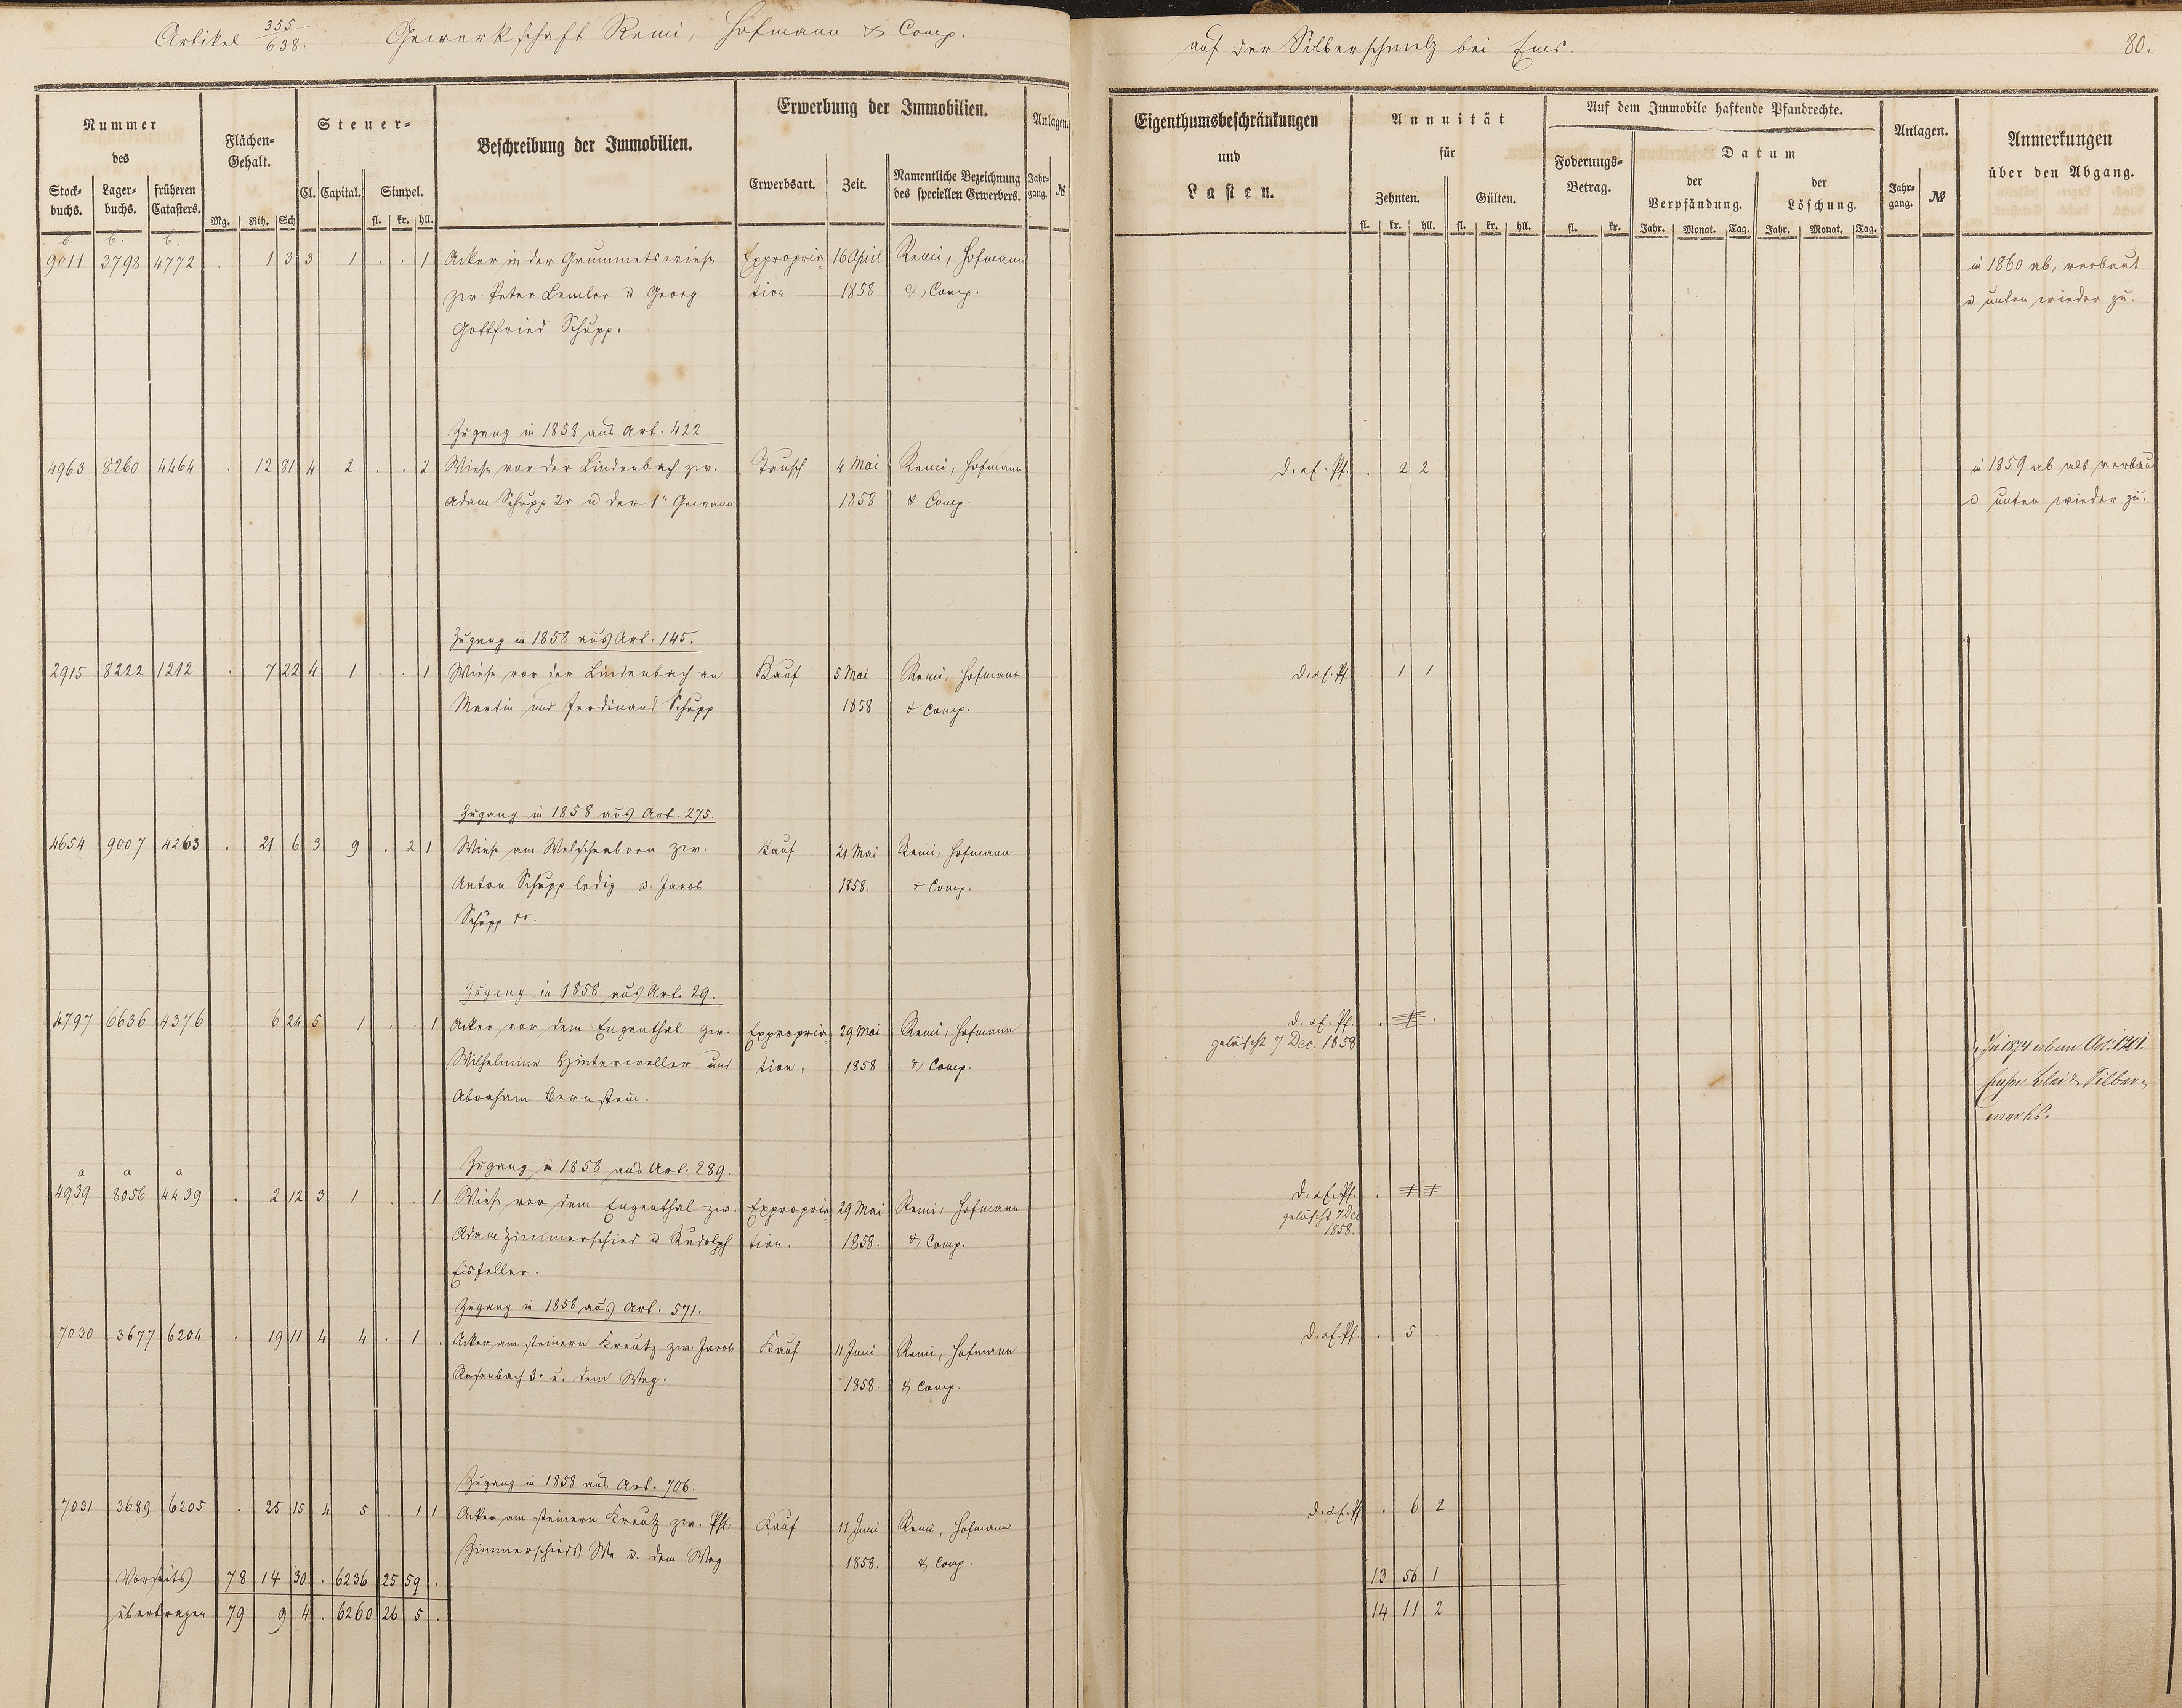 Artikel 355/638. Gewerkschaft Remi, Hofmann & Comp. auf der Silberschmelz bei Ems. 80.
Nummer des
Stockbuchs. Lagerbuchs. früheren Catasters.
Flächen-Gehalt.
Mg. Rth. Sch
Steuer-
Cl. Capital. Simpel.
fl. kr. hll.
Beschreibung der Immobilien.
Erwerbung der Immobilien.
Erwerbsart. Zeit. Namentliche Bezeichnung des speciellen Erwerbers.
Anlagen.
Jahrgang. №
Eigenthumsbeschränkungen und Lasten.
Annuität für
Zehnten. Gülten.
fl. kr. hll. fl. kr. hll.
Auf dem Immobile haftende Pfandrechte.
Foderungs-Betrag.
fl. kr.
Datum
der Verpfändung. der Löschung.
Jahr. Monat. Tag. Jahr. Monat. Tag.
Anlagen.
Jahrgang. №
Anmerkungen über den Abgang.
b. b. b.
9011 3798 4772 . 1 3 3 1 . . 1 Acker in der Grummetswiese Expropria- 16 April Remi, Hofmann in 1860 ab, verbaut
zw. Peter Lemler u Georg tion 1858 & Comp. u unten wieder zu.
Gottfried Schupp.
Zugang in 1858 aus Art. 422
4963 8260 4464 . 12 81 4 2 . . 2 Wiese vor der Lindenbach zw. Tausch 4 Mai Remi, Hofmann D. a f. Pf. . 2 2 in 1859 ab als verbaut
Adam Schupp 2r u der 1n Gewann 1858 & Comp. u unten wieder zu.
Zugang in 1858 aus Art. 145.
2915 8222 1212 . 7 22 4 1 . . 1 Wiese vor der Lindenbach an Kauf 5 Mai Remi, Hofmann D. a f. Pf . 1 1
Martin und Ferdinand Schupp 1858 & Comp.
Zugang in 1858 aus Art. 275.
4654 9007 4263 . 21 6 3 9 . 2 1 Wiese am Welschenborn zw. Kauf 21 Mai Remi, Hofmann
Anton Schupp ledig u. Jacob 1858. & Comp.
Schupp
Zugang in 1858 aus Art. 29.
4797 6636 4376 . 6 24 5 1 . . 1 Acker vor dem Engenthal zw. Expropria- 29 Mai Remi, Hofmann D. a f. Pf. . .
Wilhelmine Hinterweller und tion. 1858 & Comp. gelöscht 7 Dec. 1858
Abraham Bernstein.
In 1874 ab an Art. 1201.
Emser Blei & Silber-
werks.
Zugang in 1858 aus Art. 289.
a a a
4939 8056 4439 . 2 12 3 1 . . 1 Wiese vor dem Engenthal zw. Expropria- 29 Mai Remi, Hofmann D. a f. Pf. .
Adam Zimmerschied u Rudolph tion. 1858. & Comp. gelöscht 7 Dec
Eisfeller. 1858.
Zugang in 1858 aus Art. 571.
7030 3677 6204 . 19 11 4 4 . 1 . Acker am steinern Kreutz zw. Jacob Kauf 11 Juni Remi, Hofmann D. a f. Pf. . 5 .
Rosenbach 3r u. dem Weg. 1858. & Comp.
Zugang in 1858 aus Art. 706.
7031 3689 6205 . 25 15 4 5 . 1 1 Acker am steinern Kreutz zw. Kauf 11 Juni Remi, Hofmann D. a f. Pf . 6 2
Zimmerschieds We u. dem Weg 1858. & Comp.
Vorseits 78 14 30 . 6236 25 59 . 13 56 1
übertragen 79 9 4 . 6260 26 5 . 14 11 2